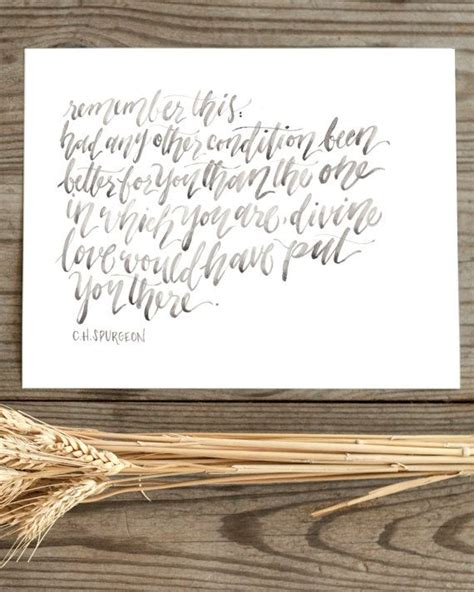 remember this:
had any other condition been
better for you than the one
in which you are, divine
love would have put
you there.
C.H. SPURGEON